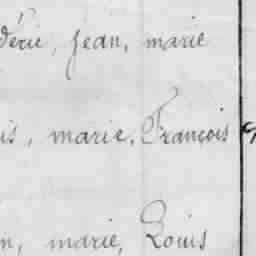 déric, Jean, marie
is, marie, François
n, marie, Louis